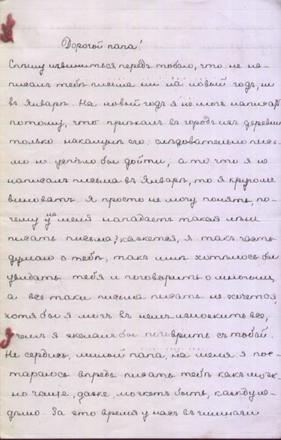 Дорогой папа!
Спѣшу извиниться передъ тобою, что не на-
писалъ тебѣ письма ни на новый годъ, ни
въ Январѣ. На новый годъ я не могъ написать
потому, что пріѣхалъ въ городъ изъ деревни
только наканунѣ его: слѣдовательно пись-
мо не успѣло бы дойти, а то что я не
написалъ письма въ Январѣ, то я кругомъ
виноватъ. Я просто не могу понять, по-
чему у меня нападаетъ такая лѣнь
писать письма; кажется, я такъ часто
думаю о тебѣ, такъ мнѣ хотѣлось бы
увидать тебя и поговорить о многомъ,
а все таки письма писать не хочется,
хотя бы я могъ въ немъ изложить все,
о чемъ я желалъ бы поговорить съ тобой.
Не сердись, милый папа, на меня я пос-
тараюсь впредь писать тебѣ какъ мож-
но чаще, даже, можетъ быть, каждую не-
дѣлю. За это время у насъ въ гимназіи